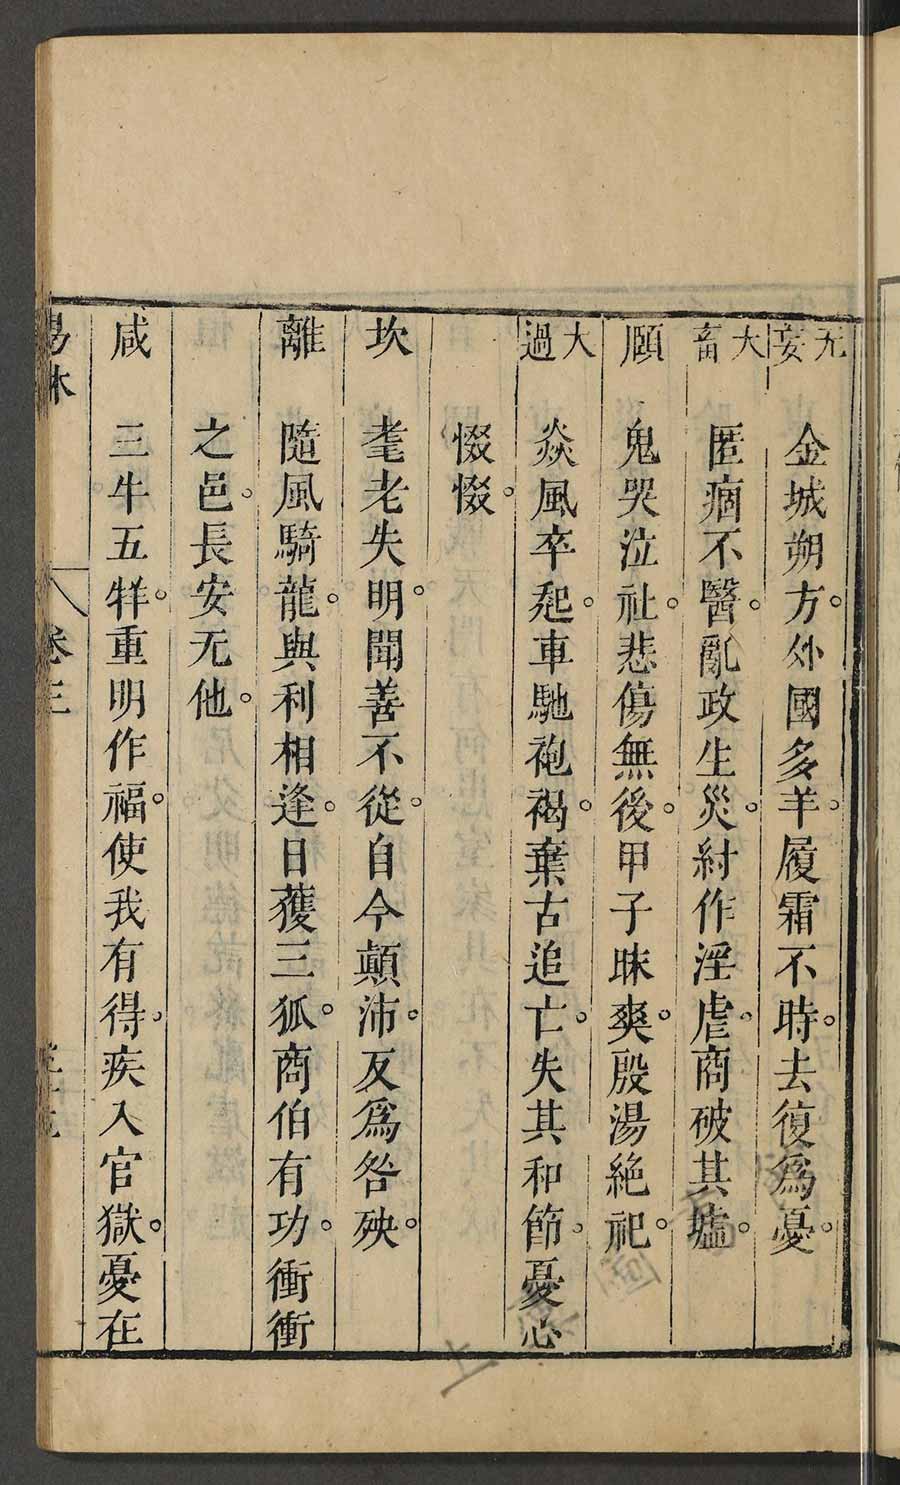 无妄 金城朔方。外國多羊。履霜不時。去復為憂。
大畜 匿痼不醫。亂政生災。紂作淫虐。商破其墟。
頤 鬼哭泣社。悲傷無後。甲子昧爽。殷湯絕祀。
大過 焱風卒起。車馳袍褐。棄古追亡。失其和節。憂心
惙惙。
坎 耄老失明。聞善不從。自今顛沛。反為咎殃。
離 隨風騎龍。與利相逢。日獲三狐。商伯有功。衝衝
之邑。長安无他。
咸 三牛五牂。重明作福。使我有得。疾入官獄。憂在
易林 卷三